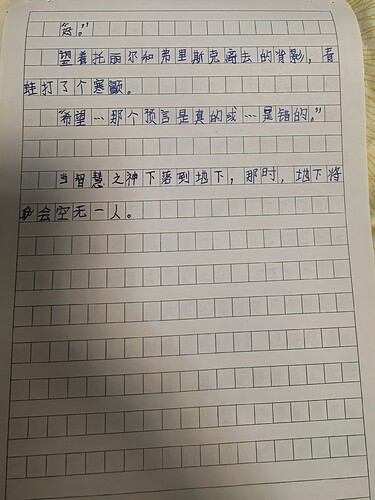 您。”
望着托丽尔和弗里斯克离去的背影，青
蛙打了个寒颤。
“希望…那个预言是真的或…是错的。”
当智慧之神下落到地下，那时，地下将
会空无一人。